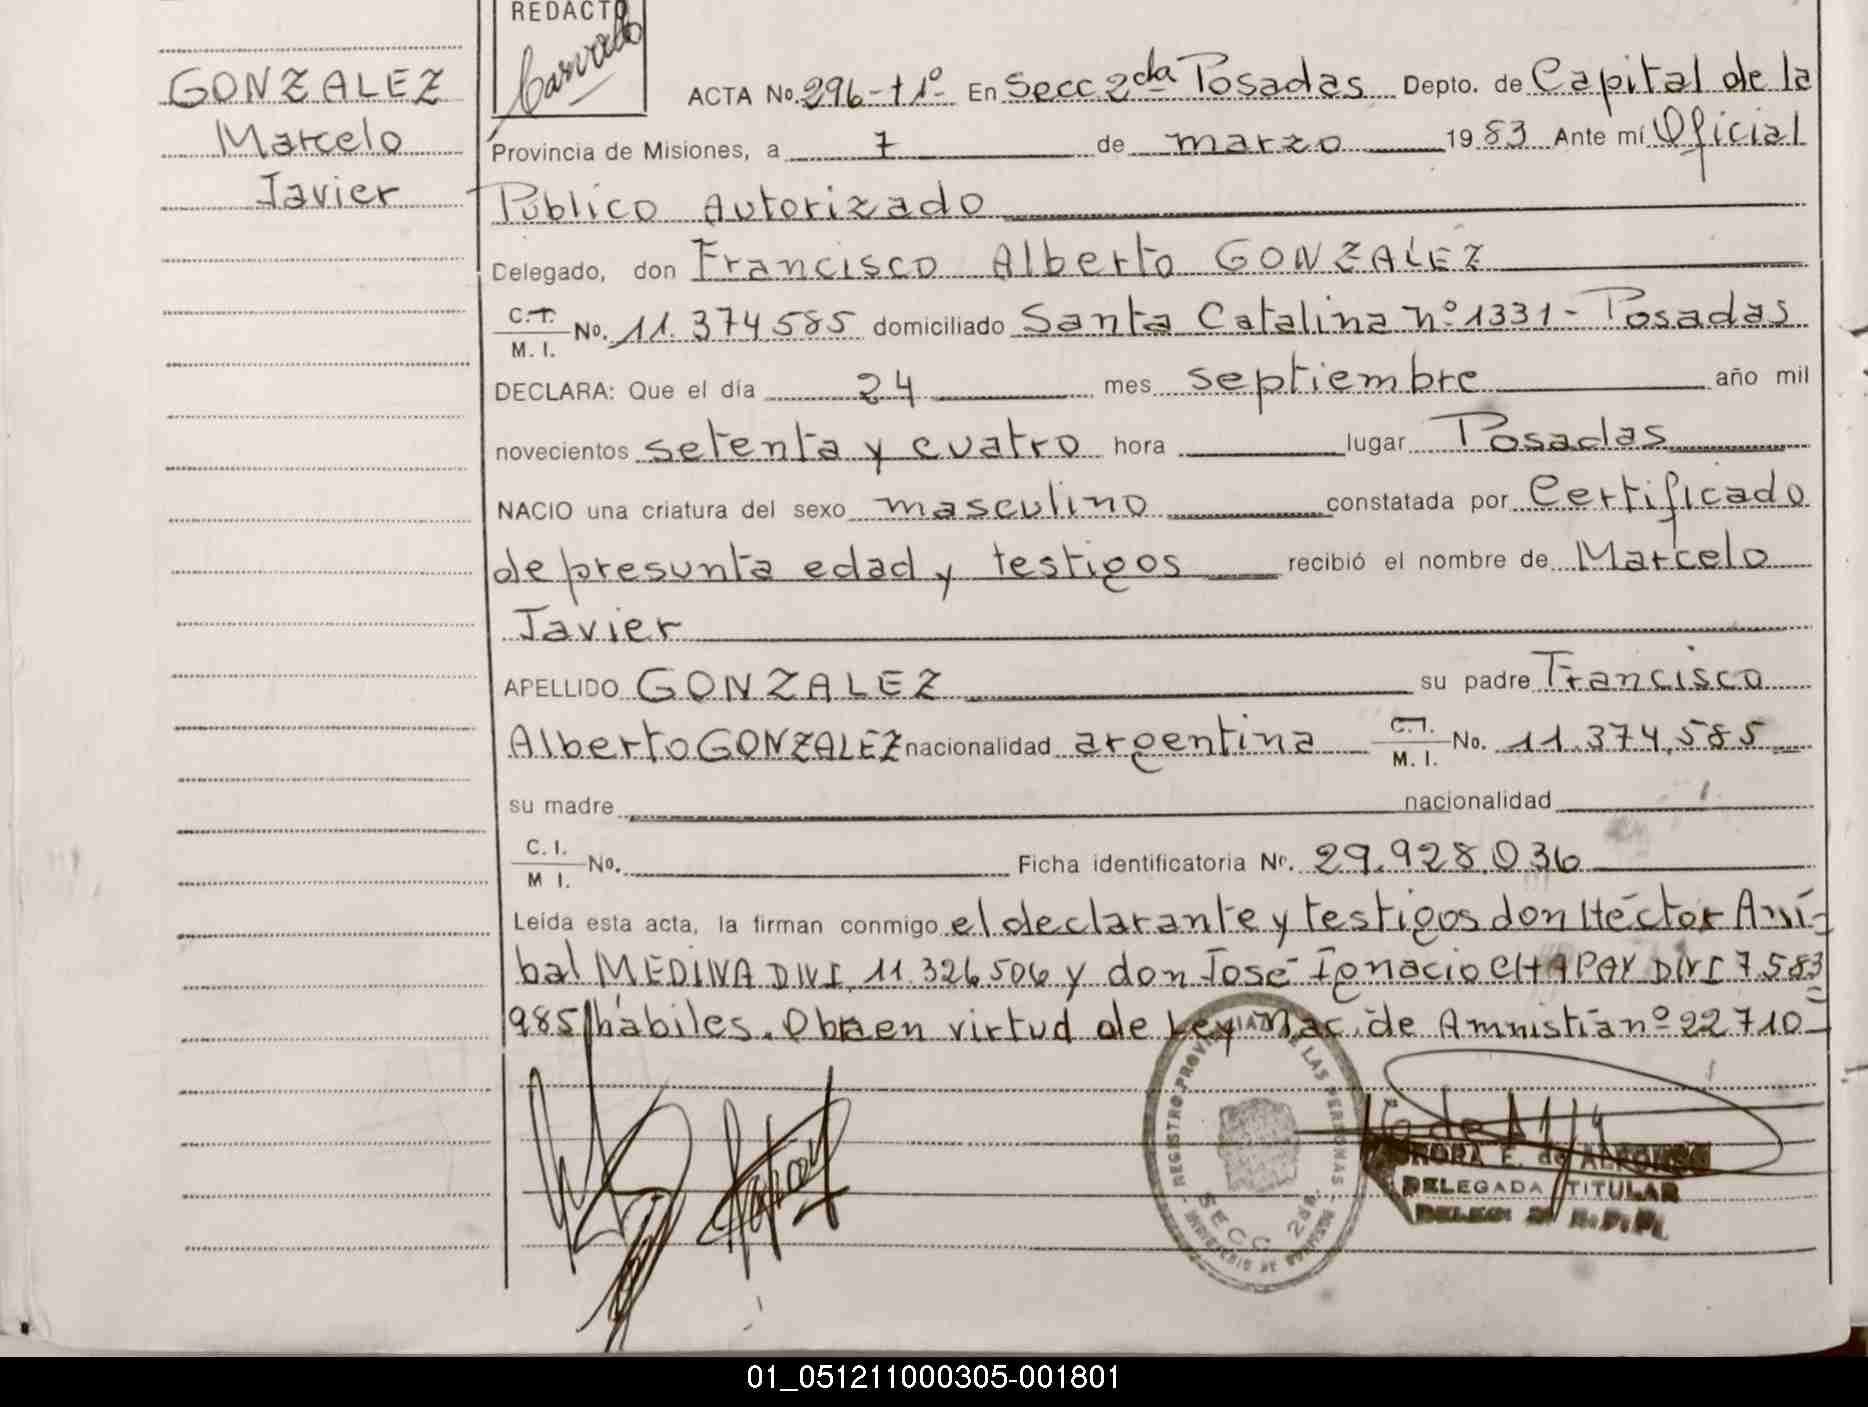 REDACTO
GONZALEZ
Marcelo
Javier
ACTA No. 296-t1º En Secc 2da Posadas Depto. de Capital de la
Provincia de Misiones, a 7 de marzo 1983 Ante mí Oficial
Público Autorizado
Delegado, don Francisco Alberto GONZALEZ
C.I. M. I. No. 11.374.585 domiciliado Santa Catalina nº 1331 - Posadas
DECLARA: Que el día 24 mes septiembre año mil
novecientos setenta y cuatro hora lugar Posadas
NACIO una criatura del sexo masculino constatada por Certificado
de presunta edad y testigos recibió el nombre de Marcelo
Javier
APELLIDO GONZALEZ su padre Francisco
Alberto GONZALEZ nacionalidad argentina C.I. M. I. No. 11.374.585
su madre nacionalidad
C. I. M I. No. Ficha identificatoria Nº. 29.928.036
Leída esta acta, la firman conmigo el declarante y testigos don Héctor Aní-
bal MEDINA DNI. 11.326.506 y don José Ignacio CHAPAY DNI 7.583
985/hábiles. Obra en virtud de Ley Nac. de Amnistía nº 22710-
REGISTRO PROVINCIAL DE LAS PERSONAS
SECC. 2da.
MINISTERIO DE GOBIERNO
DELEGADA TITULAR
01_051211000305-001801